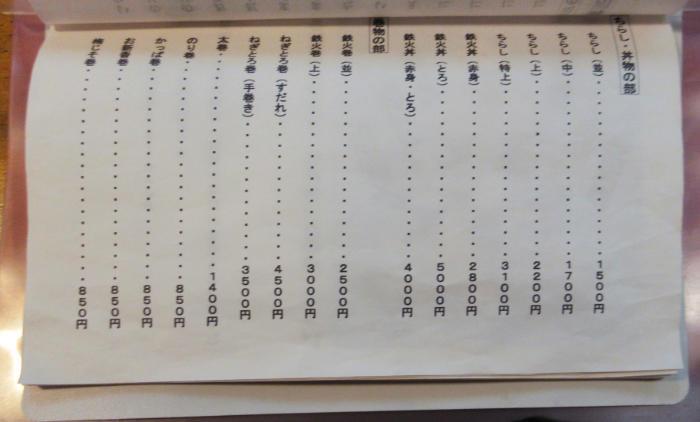 ちらし・丼物の部
ちらし（並）・・・・・・・・・・・・・・・・・・・・1500円
ちらし（中）・・・・・・・・・・・・・・・・・・・・1700円
ちらし（上）・・・・・・・・・・・・・・・・・・・・2200円
ちらし（特上）・・・・・・・・・・・・・・・・・・・3100円
鉄火丼（赤身）・・・・・・・・・・・・・・・・・・・2800円
鉄火丼（とろ）・・・・・・・・・・・・・・・・・・・5000円
鉄火丼（赤身・とろ）・・・・・・・・・・・・・・・・4000円
巻物の部
鉄火巻（並）・・・・・・・・・・・・・・・・・・・・2500円
鉄火巻（上）・・・・・・・・・・・・・・・・・・・・3000円
ねぎとろ巻（すだれ）・・・・・・・・・・・・・・・・4500円
ねぎとろ巻（手巻き）・・・・・・・・・・・・・・・・3500円
太巻・・・・・・・・・・・・・・・・・・・・・・・・1400円
のり巻・・・・・・・・・・・・・・・・・・・・・・・850円
かっぱ巻・・・・・・・・・・・・・・・・・・・・・・850円
お新香巻・・・・・・・・・・・・・・・・・・・・・・850円
梅じそ巻・・・・・・・・・・・・・・・・・・・・・・850円